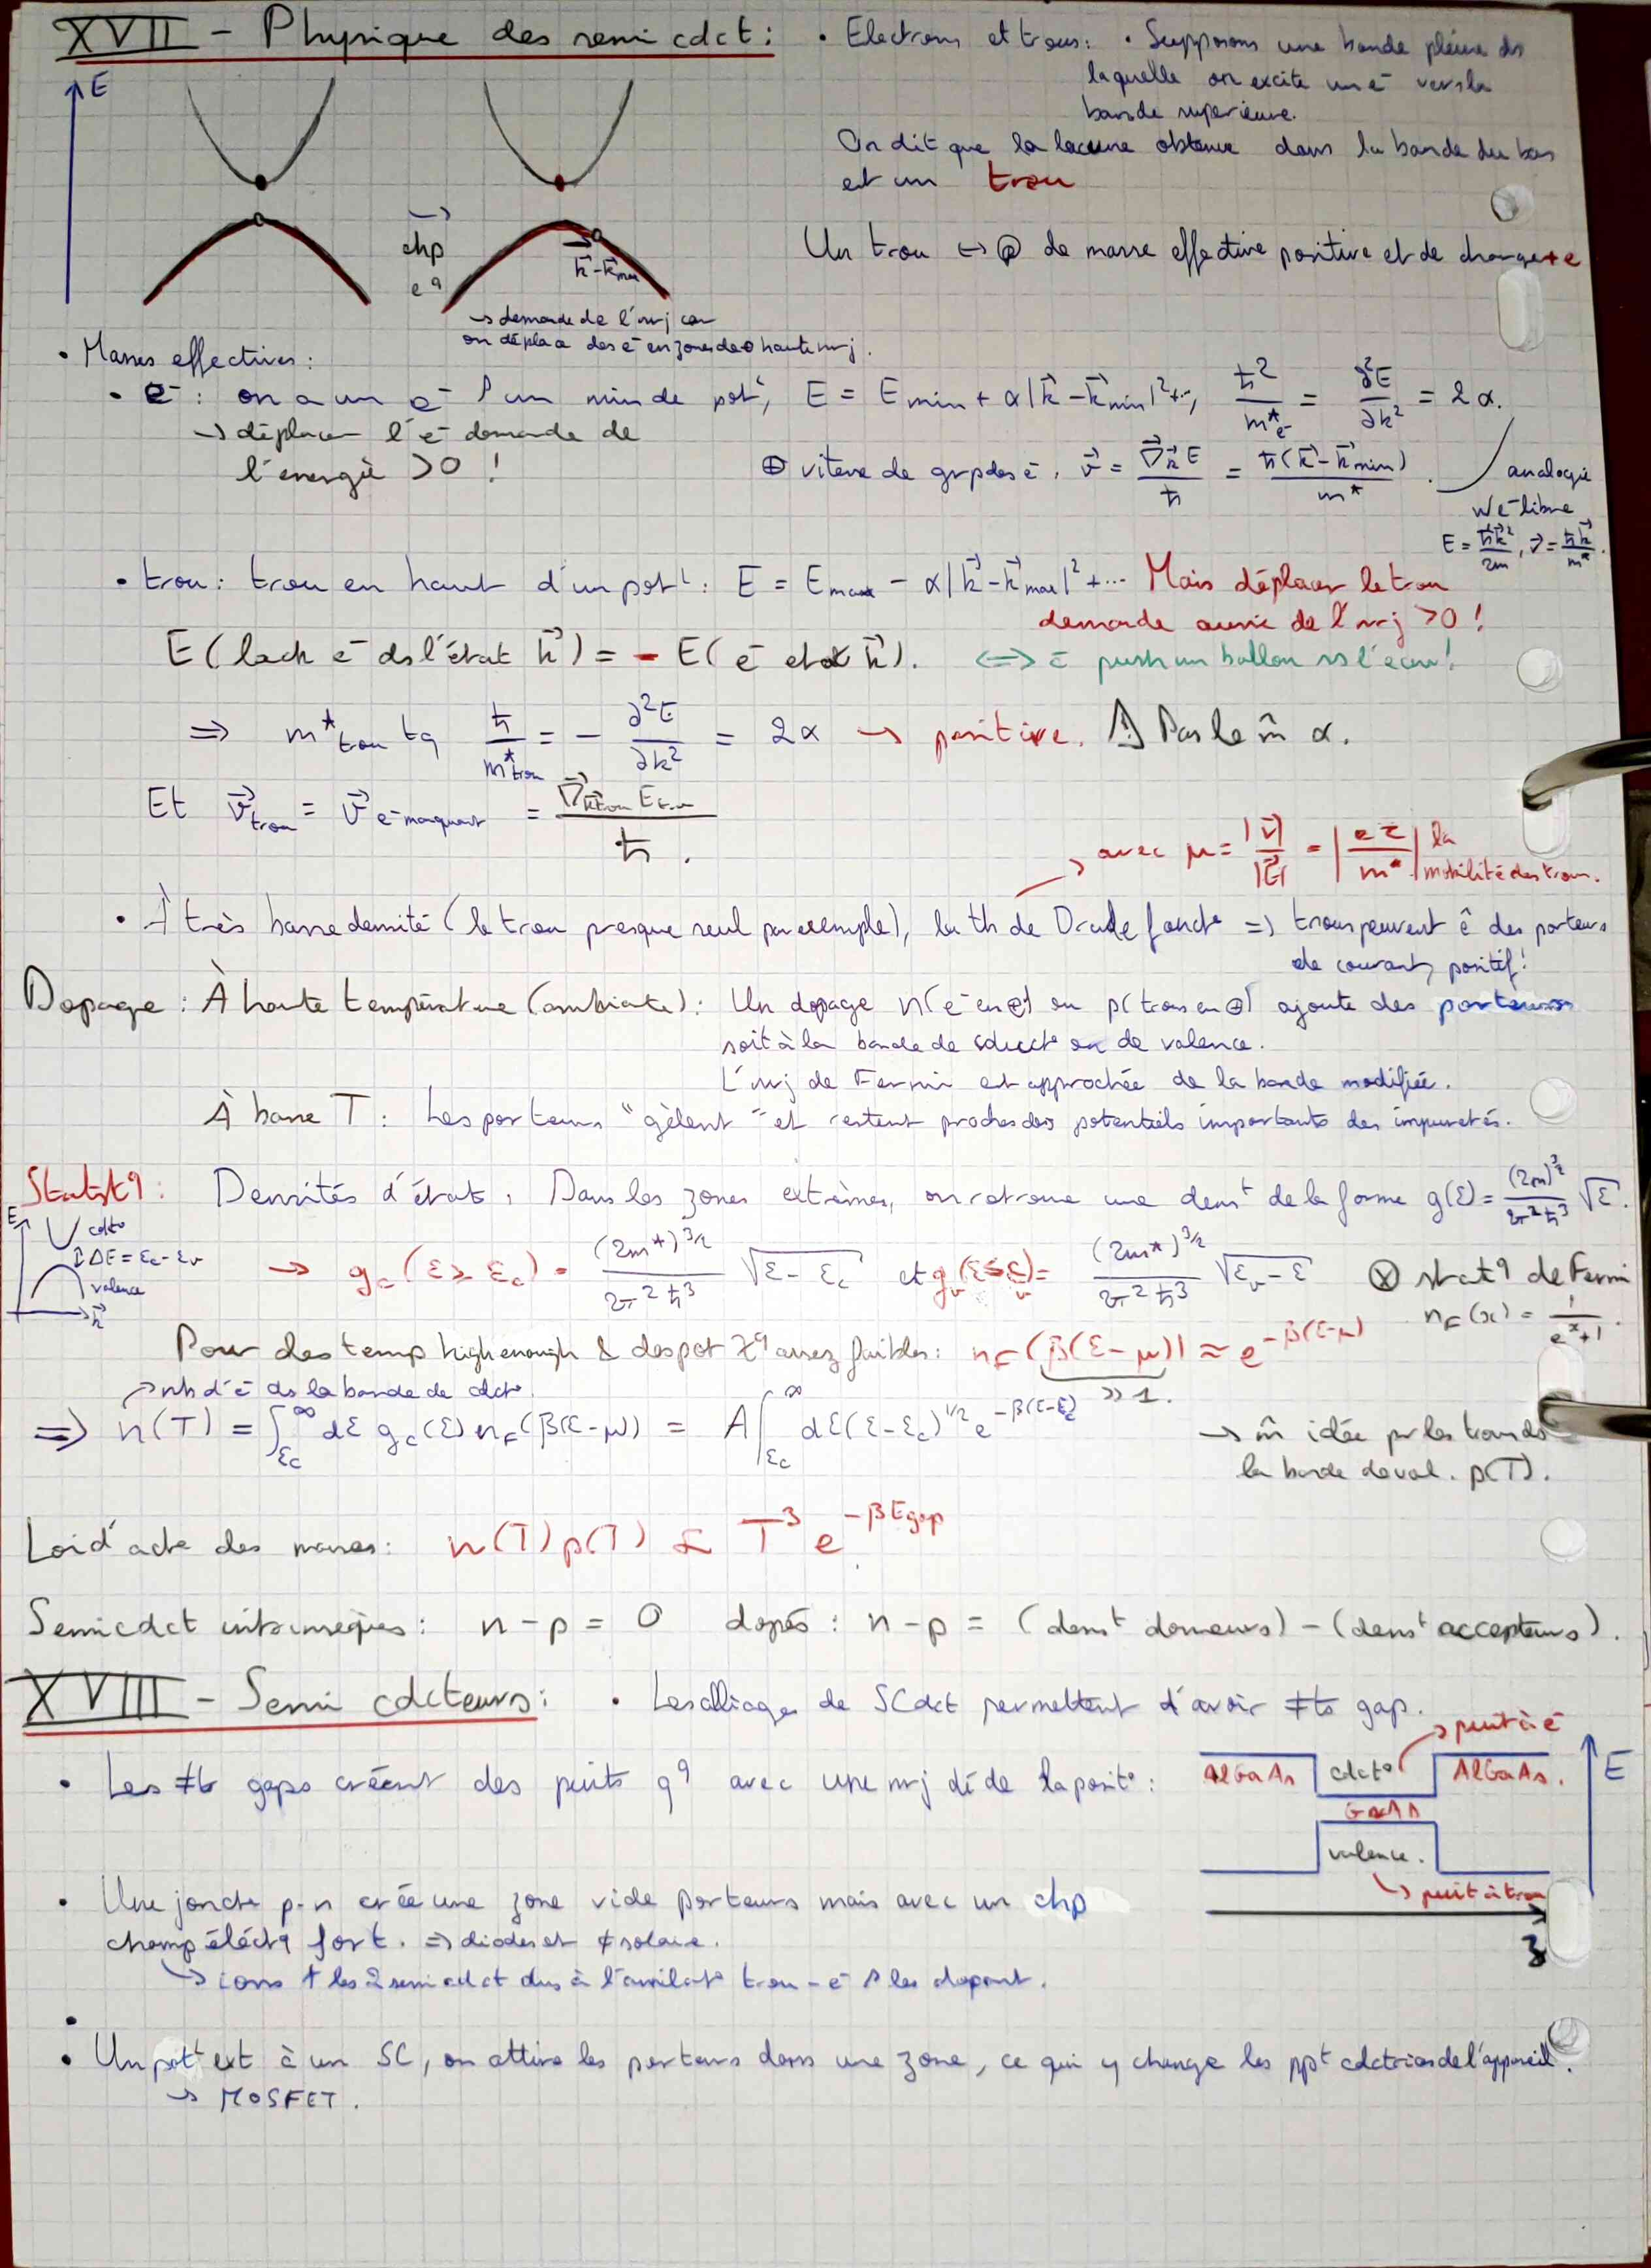 XVII - Physique des semi cdct :
• Electrons et trous : • Supposons une bande pleine ds
laquelle on excite un e⁻ vers la
bande supérieure.
On dit que la lacune obtenue dans la bande du bas
est un trou
E
chp
eq
k⃗ - k⃗max
→ demande de l'nrj car
on déplace des e⁻ en zones de haute nrj.
Un trou ↔ de masse effective positive et de charge +e
• Masses effectives :
• e⁻ : on a un e⁻ un min de pot^l, E = Emin + α|k⃗ - k⃗min|² + .., ħ²/m*e⁻ = ∂²E/∂k² = 2α.
→ déplacer l'e⁻ demande de
l'énergie > 0 !
⊕ vitesse de grp des e⁻. v⃗ = ∇⃗k⃗ E / ħ = ħ(k⃗ - k⃗min) / m*.
analogie
w/ e⁻ libre
E = ħk⃗²/2m, v⃗ = ħk⃗/m*.
• trou : trou en haut d'un pot^l : E = Emax - α|k⃗ - k⃗max|² + ... Mais déplacer le trou
demande aussi de l'nrj > 0 !
E (lack e⁻ ds l'état k⃗) = - E( e⁻ état k⃗). ⟺ push un ballon ss l'eau !
⇒ m*trou tq ħ/m*trou = - ∂²E/∂k² = 2α → positive. ⚠ Pas le m̂ α.
Et v⃗trou = v⃗ e⁻ manquant = ∇⃗k⃗trou Etrou / ħ.
→ avec μ = |v⃗|/|E⃗| = |eτ/m*| la
mobilité des trous.
• À très basse densité (le trou presque seul par exemple), la th de Drude fonct° ⇒ trous peuvent ê des porteurs
de courant, positif !
Dopage : À haute température (ambiante) : Un dopage n(e⁻ en ⊕) ou p(trous en ⊕) ajoute des porteurs
soit à la bande de cduct° ou de valence.
L'nrj de Fermi est approchée de la bande modifiée.
À basse T : Les porteurs "gèlent" et restent proches des potentiels importants des impuretés.
Statist q : Densités d'états. Dans les zones extrêmes, on retrouve une dens^t de la forme g(ε) = (2m)^3/2 / 2π²ħ³ √ε.
E
cdct°
ΔE = εc - εv
valence
k⃗
→ gc(ε ≥ εc) = (2m*)^3/2 / 2π²ħ³ √ε - εc et gv(ε ≤ εv) = (2m*)^3/2 / 2π²ħ³ √εv - ε ⊗ stat q de Fermi
nF(x) = 1 / eˣ+1.
Pour des temp high enough & des pot χq assez faibles : nF(β(ε - μ)) ≈ e^-β(ε-μ)
≫ 1.
→ nb d'e⁻ ds la bande de cdct°.
⇒ n(T) = ∫εc^∞ dε gc(ε) nF(β(ε - μ)) = A ∫εc^∞ dε (ε - εc)^1/2 e^-β(ε-εc)
→ m̂ idée pr les trous ds
la bande de val. p(T).
Loi d'acte des masses : n(T) p(T) ∝ T³ e^-βEgap
Semicdct intrinsèques : n - p = 0 dopés : n - p = (dens^t donneurs) - (dens^t accepteurs).
XVIII - Semi cdcteurs :
• Les alliages de SCdct permettent d'avoir ≠ts gap.
• Les ≠ts gaps créent des puits qq avec une nrj dé de la posit° :
→ puit à e⁻
AlGaAs
cdct°
AlGaAs.
E
GaAs
valence.
→ puit à trou
z
• Une jonct° p-n crée une zone vide porteurs mais avec un chp
champ éléctq fort. ⇒ diodes et ¢ solaire.
→ ions les 2 semicdct dus à l'annilat° trou - e⁻ les dopant.
•
• Un pot^l ext à un SC, on attire les porteurs dans une zone, ce qui y change les pp^t cdctrices de l'appareil.
→ MOSFET.